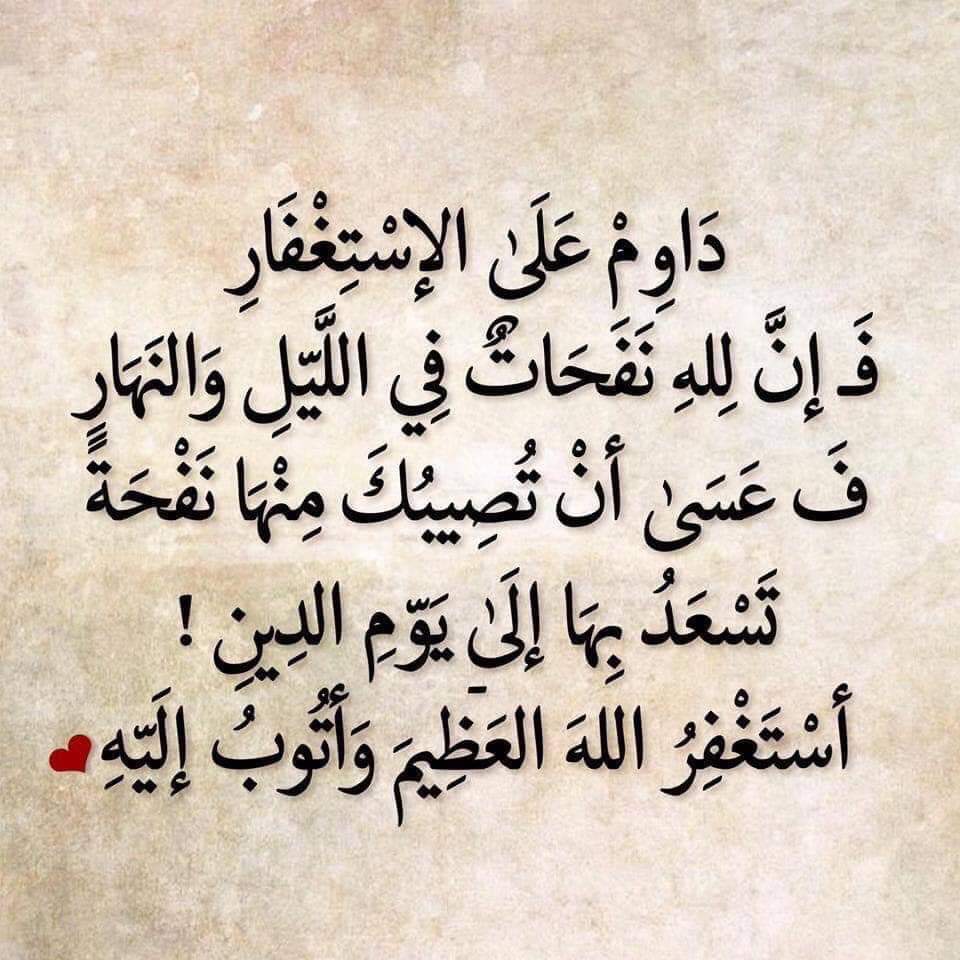 دَاوِمْ عَلَىٰ الإسْتِغْفَارِ
فَـ إنَّ لِلهِ نَفَحَاتٌ فِي اللَّيّلِ وَالنَهَارِ
فَ عَسَىٰ أنْ تُصِيبُكَ مِنْهَا نَفْحَةً
تَسْعَدُ بِهَا إلَىٰ يَوّمِ الدِينِ !
أسْتَغْفِرُ اللهَ العَظِيمَ وَأتُوبُ إلَيّهِ❤